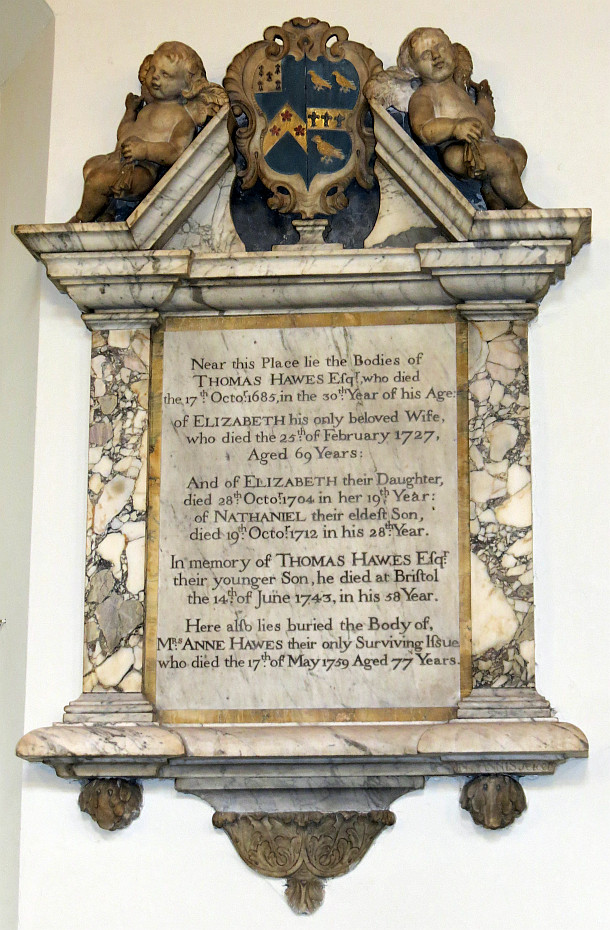 Near this Place lie the Bodies of
THOMAS HAWES Eſqr, who died
the 17th Octor 1685, in the 30th Year of his Age:
of ELIZABETH his only beloved Wife,
who died the 25th of February 1727,
Aged 69 Years:
And of ELIZABETH their Daughter,
died 28th Octor 1704 in her 19th Year:
of NATHANIEL their eldeſt Son,
died 19th Octor 1712 in his 28th Year.
In memory of THOMAS HAWES Eſqr
their younger Son, he died at Briſtol
the 14th of June 1743, in his 58 Year.
Here alſo lies buried the Body of,
Mrs ANNE HAWES their only Surviving Iſsue
who died the 17th of May 1759 Aged 77 Years.